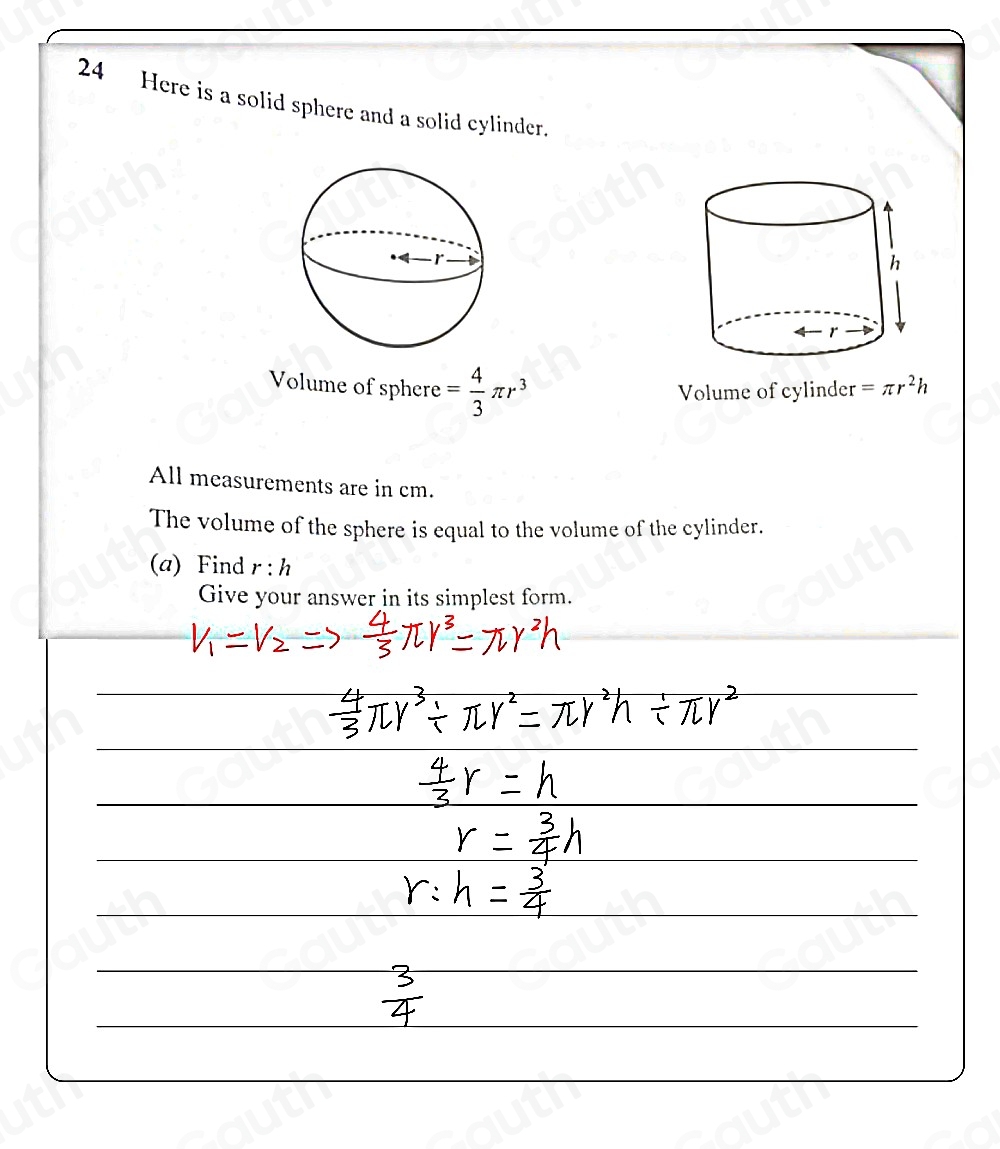 24 Here is a solid sphere and a solid cylinder.
r
h
r
Volume of sphere = 4/3 πr³
Volume of cylinder = πr²h
All measurements are in cm.
The volume of the sphere is equal to the volume of the cylinder.
(a) Find r : h
Give your answer in its simplest form.
V₁ = V₂ => 4/3 πr³ = πr²h
4/3 πr³ ÷ πr² = πr²h ÷ πr²
4/3 r = h
r = 3/4 h
r : h = 3/4
3/4
Gauth